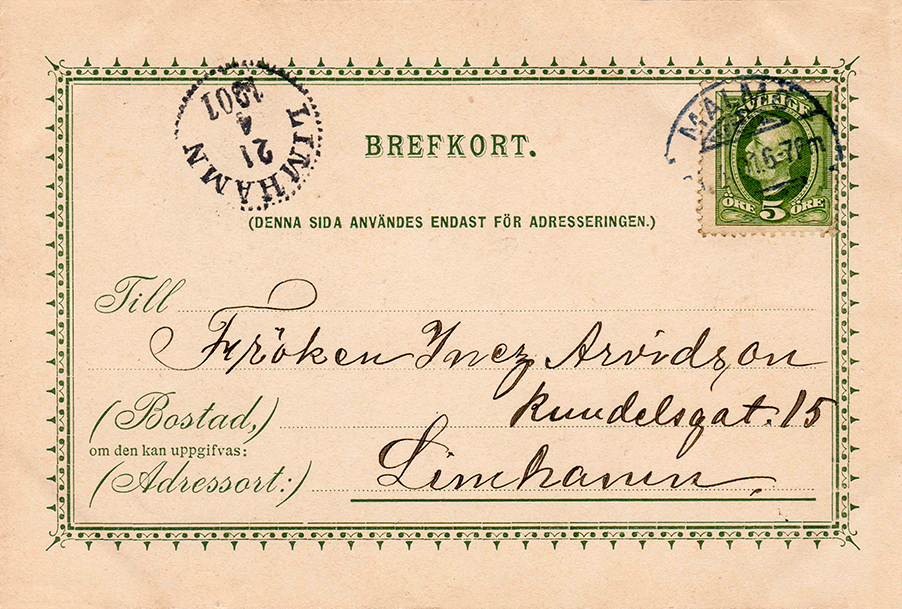 LIMHAMN
21
4
1901
MALMÖ
6-7 Em
SVERIGE
ÖRE 5 ÖRE
BREFKORT.
(DENNA SIDA ANVÄNDES ENDAST FÖR ADRESSERINGEN.)
Till
Fröken Inez Arvidson
Kundelsgat. 15
(Bostad,)
om den kan uppgifvas:
(Adressort:)
Limhamn